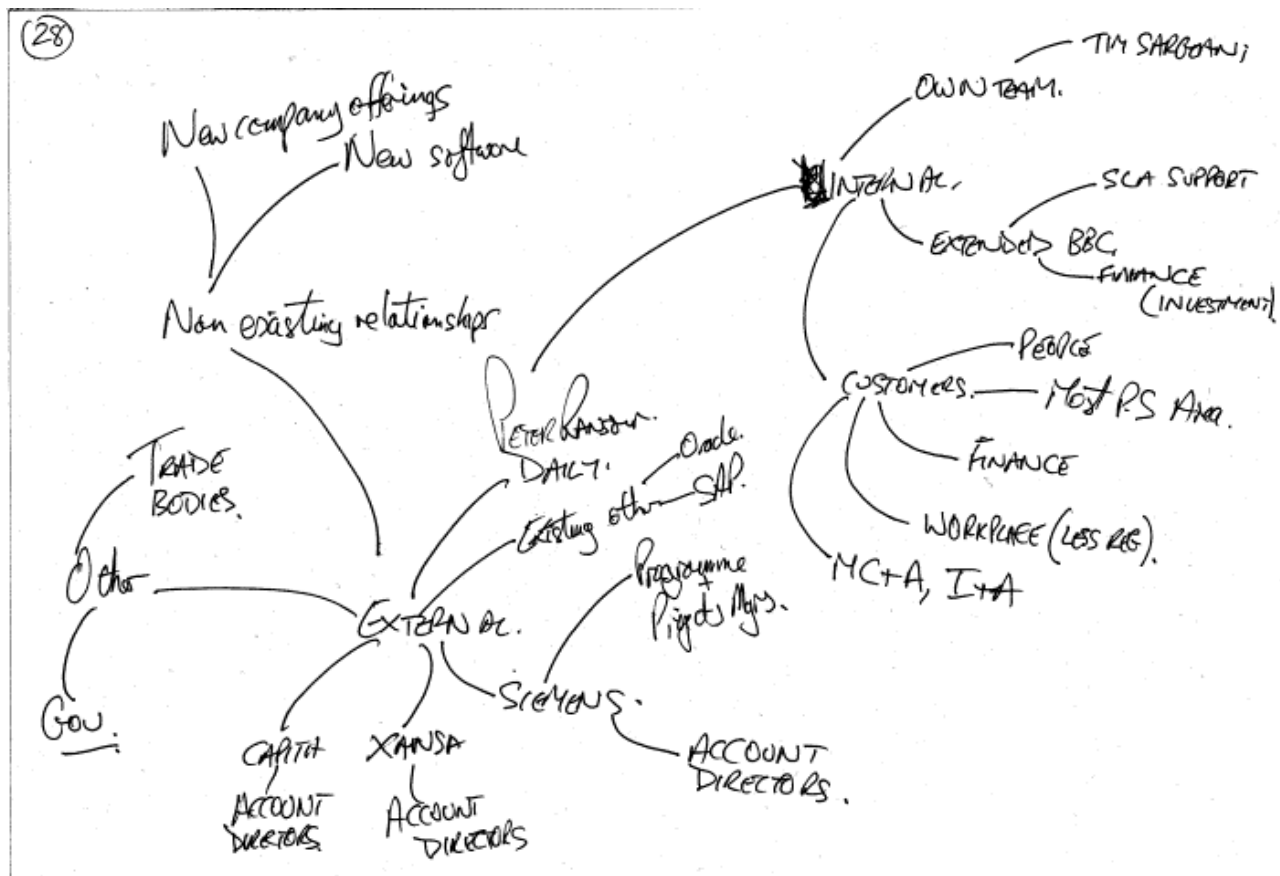 28
New company offings
New software
Non existing relationships
TRADE
BODIES.
Other
Gov.
PETER RANSOM.
DAILY.
Existing other
Oracle.
SAP.
EXTERNAL.
Programme
+
Projects Mgrs.
SIEMENS.
ACCOUNT
DIRECTORS.
CAPITA
ACCOUNT
DIRECTORS.
XANSA
ACCOUNT
DIRECTORS
INTERNAL.
OWN TEAM.
TIM
EXTENDED BBC.
SLA SUPPORT
FINANCE
(INVESTMENT).
CUSTOMERS.
PEOPLE
Most P.S Area.
FINANCE
WORKPLACE (LESS REG).
MC+A, I+A